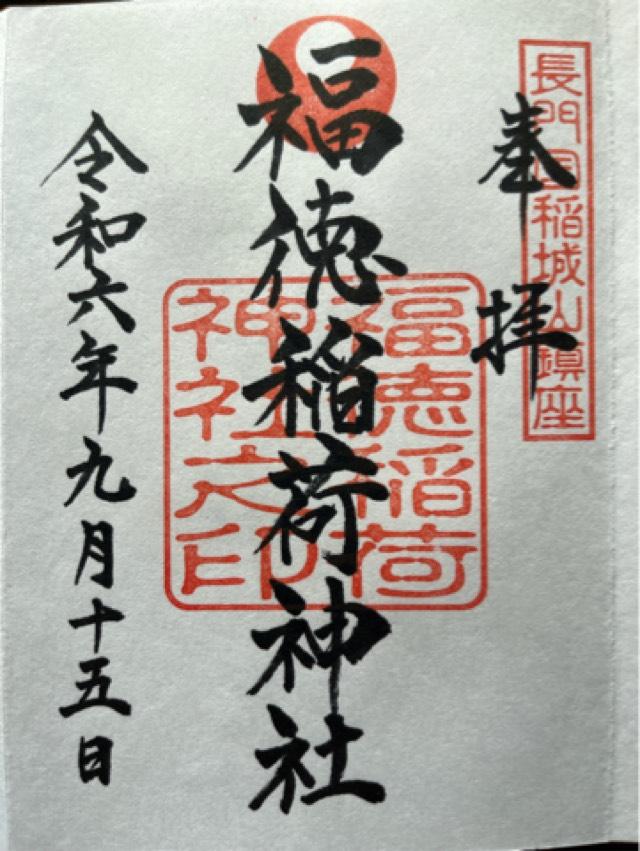 長門国稲城山鎮座
奉拝
福徳稲荷神社
福徳稲荷
神社之印
令和六年九月十五日